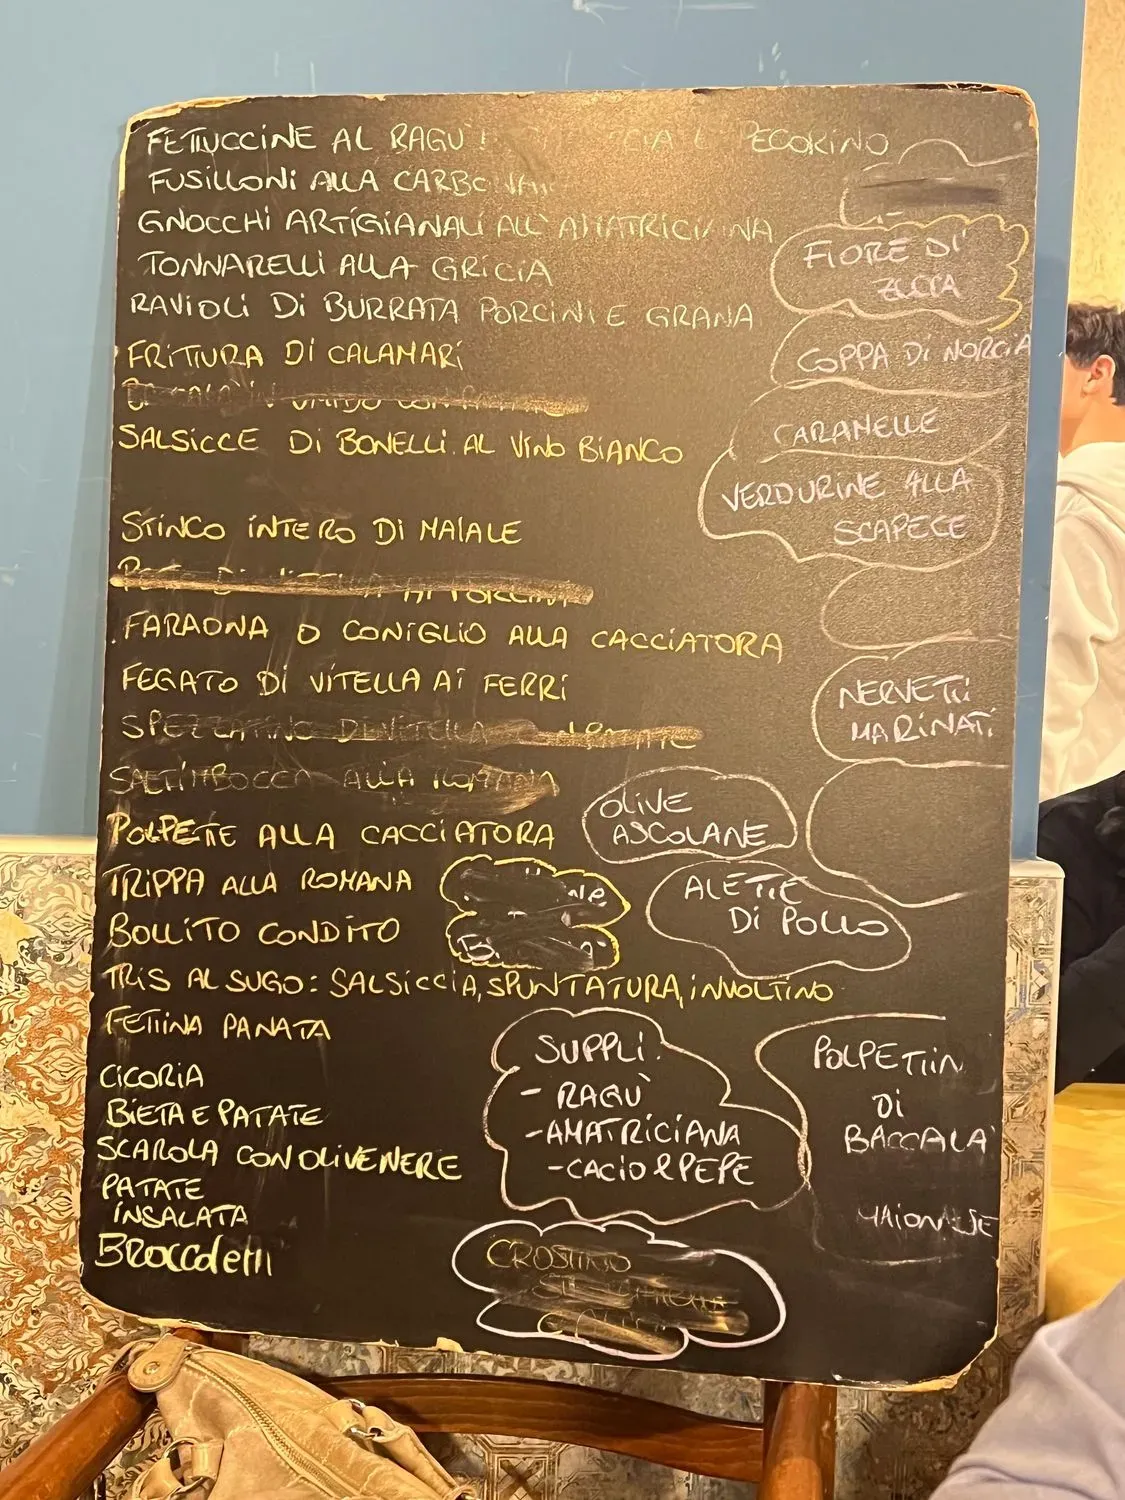 FETTUCCINE AL RAGÙ! E PECORINO
FUSILLONI ALLA CARBONARA
GNOCCHI ARTIGIANALI ALL'AMATRICIANA
TONNARELLI ALLA GRICIA
RAVIOLI DI BURRATA PORCINI E GRANA
FRITTURA DI CALAMARI
SALSICCE DI BONELLI AL VINO BIANCO
STINCO INTERO DI MAIALE
FARAONA O CONIGLIO ALLA CACCIATORA
FEGATO DI VITELLA AI FERRI
SPEZZATINO DI VITELLA
SALTIMBOCCA ALLA ROMANA
POLPETTE ALLA CACCIATORA
TRIPPA ALLA ROMANA
BOLLITO CONDITO
TRIS AL SUGO: SALSICCIA, SPUNTATURA, INVOLTINO
FETTINA PANATA
CICORIA
BIETA E PATATE
SCAROLA CON OLIVE NERE
PATATE
INSALATA
BROCCOLETTI
FIORE DI
ZUCCA
COPPA DI NORCIA
CARAMELLE
VERDURINE ALLA
SCAPECE
NERVETTI
MARINATI
OLIVE
ASCOLANE
ALETTE
DI POLLO
SUPPLÌ:
- RAGÙ
- AMATRICIANA
- CACIO & PEPE
POLPETTIN
DI
BACCALÀ
MAIONESE
CROSTINO